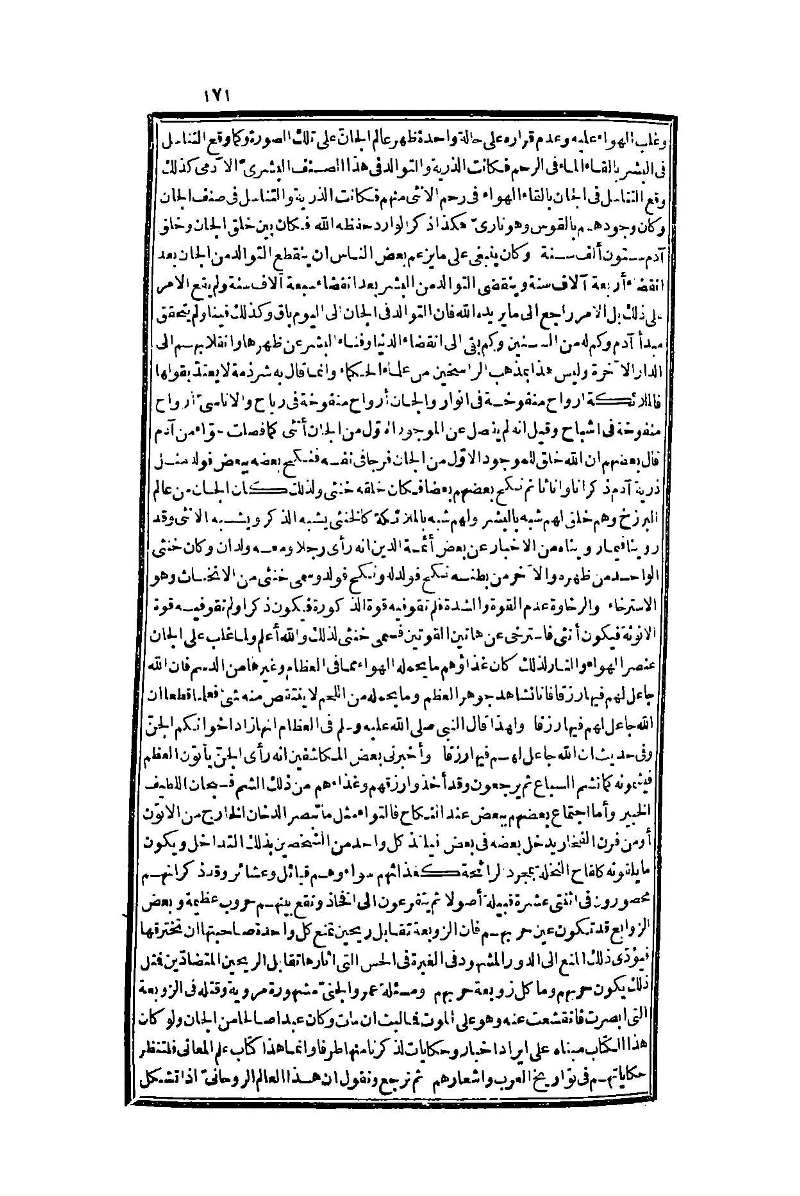 ١٧١
وغلب الهواء عليه وعدم قراره على حالة واحدة ظهر عالم الجان على تلك الصورة وكما وقع التناسل
فى البشر بالقاء الماء فى الرحم فكانت الذرية والتوالد فى هذا الصنف البشرى الآدمى كذلك
وقع التناسل فى الجان بالقاء الهواء فى رحم الانثى منهم فكانت الذرية والتناسل فى صنف الجان
وكان وجودهم بالقوس وهو نارى هكذا ذكر الوارد حفظه الله فكان بين خلق الجان وخلق
آدم ستون ألف سنة وكان ينبغى على ما يزعم بعض الناس ان ينقطع التوالد من الجان بعد
انقضاء أربعة آلاف سنة وينقضى التوالد من البشر بعد انقضاء سبعة آلاف سنة ولم يقع الامر
على ذلك بل الامر راجع الى ما يريده الله فان التوالد فى الجان الى اليوم باق وكذلك فينا ولم يتحقق
مبدأ آدم وكم له من السنين وكم بقى الى انقضاء الدنيا وفناء البشر عن ظهرها وانقلابهم الى
الدار الآخرة وليس هذا بمذهب الراسخين من علماء الحكماء وانما قال به شرذمة لا يعتد بقولها
فالملائكة أرواح منفوخة فى انوار والجان أرواح منفوخة فى رياح والاناسى أرواح
منفوخة فى اشباح وقيل انه لم يفصل عن الموجود الاول من الجان أنثى كما فصلت حواء من آدم
قال بعضهم ان الله خلق للموجود الاول من الجان فرجا فى نفسه فنكح بعضه ببعض فولد مثل
ذرية آدم ذكرانا واناثا ثم نكح بعضهم بعضا فكان خلقه خنثى ولذلك كان الجان من عالم
البرزخ وهم خلق لهم شبه بالبشر ولهم شبه بالملائكة كالخنثى يشبه الذكر ويشبه الانثى وقد
روينا فيما رويناه من الاخبار عن بعض أئمة الدين انه رأى رجلا ومعه ولدان وكان خنثى
الواحد من ظهره والآخر من بطنه نكح فولد له ونكح فولد وسمى خنثى من الانخناث وهو
الاسترخاء والرخاوة عدم القوة والشدة فلم تقو فيه قوة الذكورة فيكون ذكرا ولم تقو فيه قوة
الانوثة فيكون أنثى فاسترخى عن هاتين القوتين فسمى خنثى لذلك والله أعلم ولما غلب على الجان
عنصر الهواء والنار لذلك كان غذاؤهم ما يحمله الهواء مما فى العظام وغيرها من الدسم فان الله
جاعل لهم فيها رزقا فانا نشاهد جوهر العظم وما يحمله من اللحم لا ينتقص منه شئ فعلمنا قطعا ان
الله جاعل لهم فيها رزقا ولهذا قال النبى صلى الله عليه وسلم فى العظام انها زاد اخوانكم الجن
وفى حديث ان الله جاعل لهم فيها رزقا وأخبرنى بعض المكاشفين انه رأى الجن يأتون العظم
فيشمونه كما تشم السباع ثم يرجعون وقد أخذوا رزقهم وغذاءهم من ذلك الشم فسبحان اللطيف
الخبير وأما اجتماع بعضهم ببعض عند النكاح فالتواء مثل ما تبصر الدخان الخارج من الاتون
أو من فرن الفخار يدخل بعضه فى بعض فيلتذ كل واحد من الشخصين بذلك التداخل ويكون
ما يلقونه كلقاح النخلة بمجرد الرائحة كغذائهم سواء وهم قبائل وعشائر وقد ذكر انهم
محصورون فى اثنتى عشرة قبيلة أصولا ثم يتفرعون الى افخاذ وتقع بينهم حروب عظيمة وبعض
الزوابع قد تكون عين حربهم فان الزوبعة تقابل ريحين تمنع كل واحدة صاحبتها ان تخترقها
فيؤدى ذلك المنع الى الدور المشهود فى الغبرة فى الحس التى اثارها تقابل الريحين المتضادين فمثل
ذلك يكون حربهم وما كل زوبعة حربهم ومسئلة عمرو الجنى مشهورة مروية وقتله فى الزوبعة
التى ابصرت فانقشعت عنه وهو على الموت فما لبث ان مات وكان عبدا صالحا من الجان ولو كان
هذا الكتاب مبناه على ايراد اخبار وحكايات لذكرنا منها طرفا وانما هذا كتاب علم المعانى فلتنظر
حكاياتهم فى تواريخ العرب واشعارهم ثم نرجع ونقول ان هذا العالم الروحانى اذا تشكل